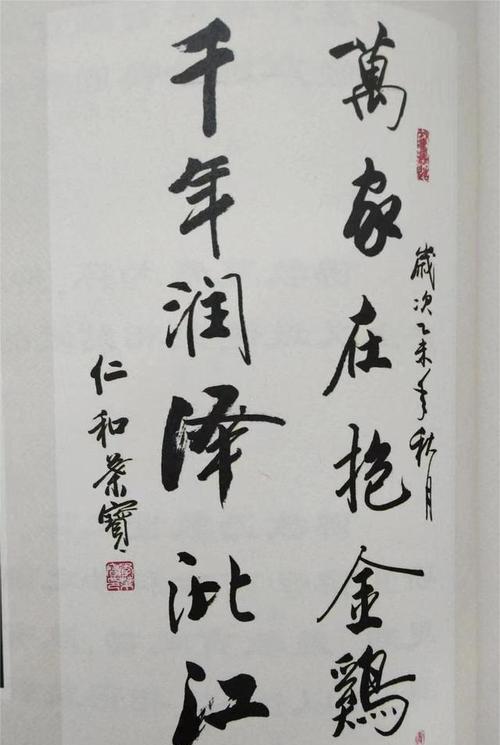 歲次乙未年秋月
萬家在抱金鷄
千年润泽沘江
仁和寶